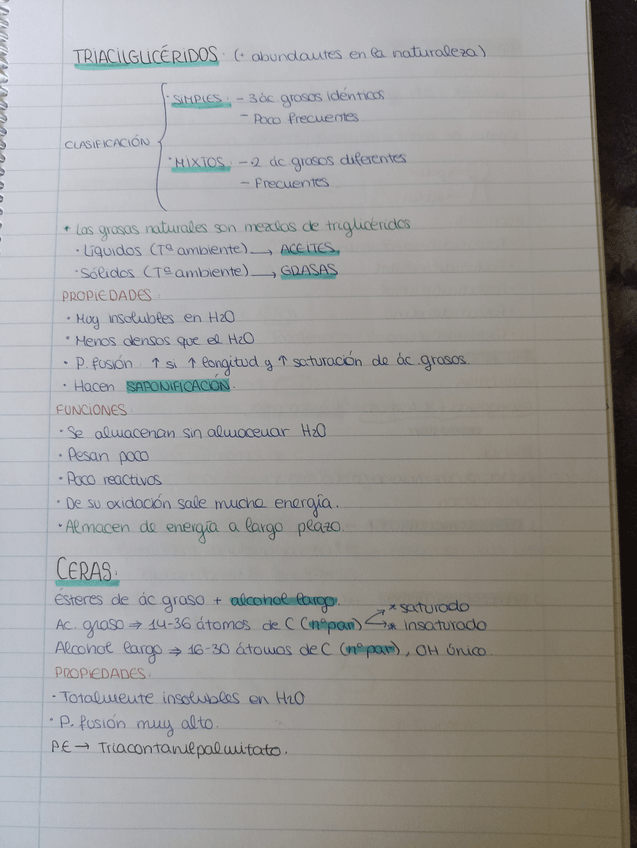 TRIACILGLICÉRIDOS. (+ abundantes en la naturaleza)
CLASIFICACIÓN
· SIMPLES: - 3 ác grasos idénticos
- Poco frecuentes
· MIXTOS: - 2 ác grasos diferentes
- Frecuentes
* Las grasas naturales son mezclas de triglicéridos
· Líquidos (Tª ambiente) → ACEITES.
· Sólidos (Tª ambiente) → GRASAS
PROPIEDADES.
· Muy insolubles en H2O
· Menos densos que el H2O
· P. fusión ↑ si ↑ longitud y ↑ saturación de ác. grasos.
· Hacen SAPONIFICACIÓN.
FUNCIONES.
· Se almacenan sin almacenar H2O
· Pesan poco
· Poco reactivos
· De su oxidación sale mucha energía.
· Almacen de energía a largo plazo.
CERAS.
Ésteres de ác graso + alcohol largo.
Ac. graso ⇒ 14-36 átomos de C (nº par) * saturado
* insaturado
Alcohol largo ⇒ 16-30 átomos de C (nº par), OH único
PROPIEDADES.
· Totalmente insolubles en H2O
· P. fusión muy alto.
PE → Triacontanilpalmitato.